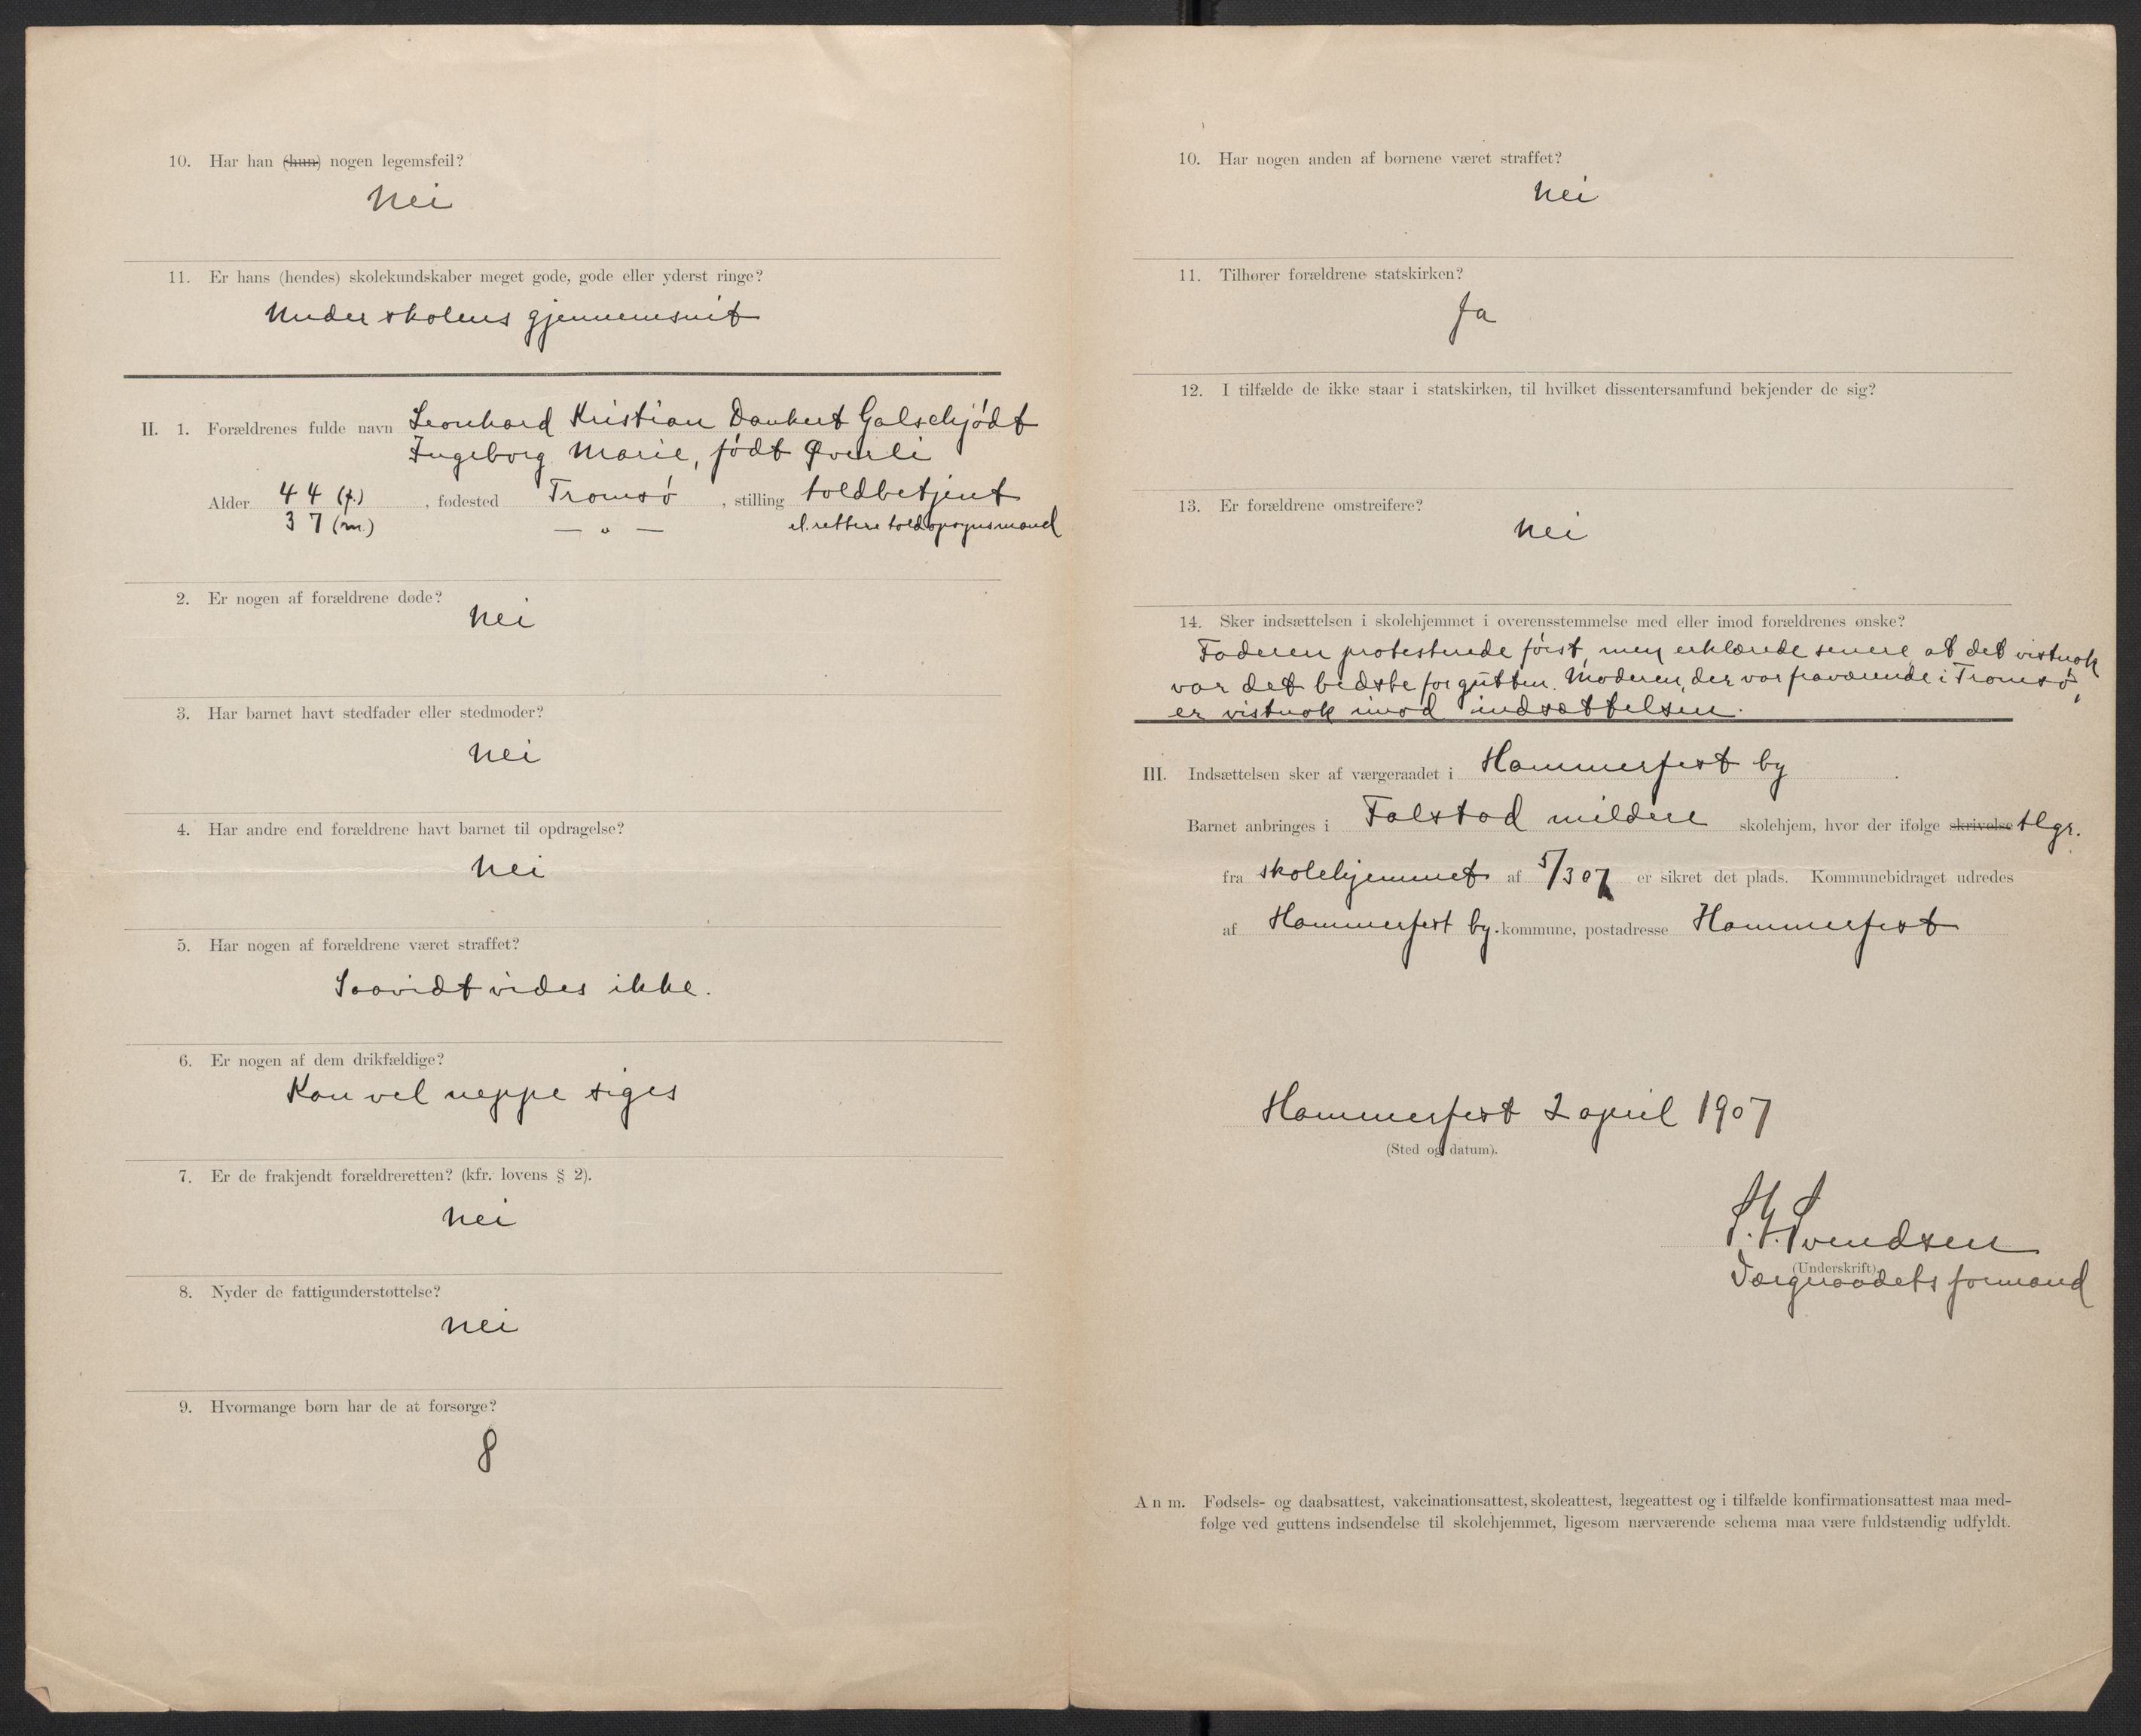 10. Har han (hun) nogen legemsfeil?
Nei
11. Er hans (hendes) skolekundskaber meget gode, gode eller yderst ringe?
Under skolens gjennemsnit
II. 1. Forældrenes fulde navn Leonhard Kristian Dankert Galschjødt
Ingeborg Marie, født Øverli
Alder 44 (f.), fødested Tromsø, stilling toldbetjent
37 (m.) — „ — el. rettere toldopsynsmand
2. Er nogen af forældrene døde?
Nei
3. Har barnet havt stedfader eller stedmoder?
Nei
4. Har andre end forældrene havt barnet til opdragelse?
Nei
5. Har nogen af forældrene været straffet?
Saavidt vides ikke.
6. Er nogen af dem drikfældige?
Kan vel neppe siges
7. Er de frakjendt forældreretten? (kfr. lovens § 2).
Nei
8. Nyder de fattigunderstøttelse?
Nei
9. Hvormange børn har de at forsørge?
8
10. Har nogen anden af børnene været straffet?
Nei
11. Tilhører forældrene statskirken?
Ja
12. I tilfælde de ikke staar i statskirken, til hvilket dissentersamfund bekjender de sig?
13. Er forældrene omstreifere?
Nei
14. Sker indsættelsen i skolehjemmet i overensstemmelse med eller imod forældrenes ønske?
Faderen protesterede først, men erklærede senere, at det vistnok
var det bedste for gutten. Moderen, der var fraværende i Tromsø,
er vistnok imod indsættelsen.
III. Indsættelsen sker af værgeraadet i Hammerfest by.
Barnet anbringes i Falstad mildere skolehjem, hvor der ifølge skrivelse tlgr.
fra skolehjemmet af 5/3 07 er sikret det plads. Kommunebidraget udredes
af Hammerfest by. kommune, postadresse Hammerfest
Hammerfest 2 april 1907
(Sted og datum).
Svendsen
(Underskrift).
Værgeraadets formand
Anm. Fødsels- og daabsattest, vakcinationsattest, skoleattest, lægeattest og i tilfælde konfirmationsattest maa med-
følge ved guttens indsendelse til skolehjemmet, ligesom nærværende schema maa være fuldstændig udfyldt.